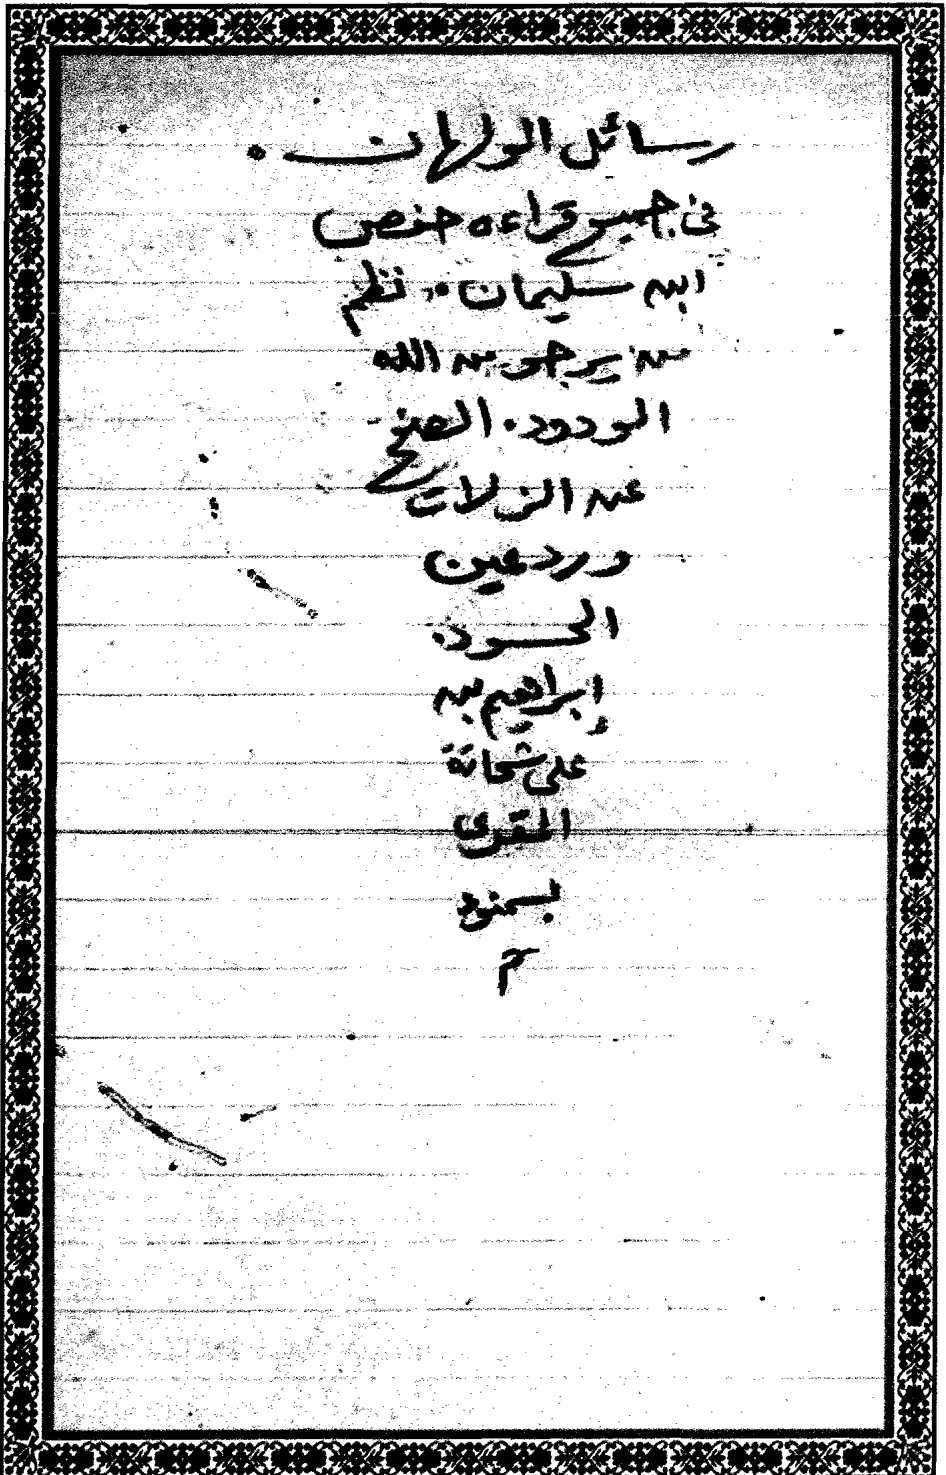 رسائل الولهان.
في جميع قراءه حفص
ابن سليمان. نظم
من يرجو من الله
الودود. الصفح
عن الزلات
ورد عين
الحسود.
إبراهيم بن
على شحاتة
المقرى
بسمنود
م